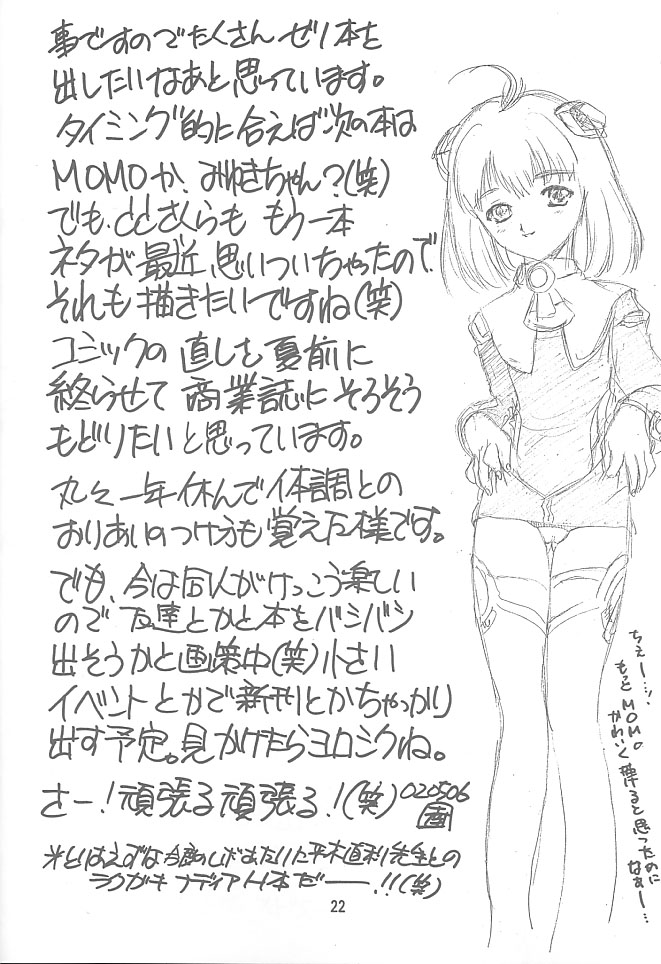 事ですのでたくさん ゼノ本を
出したいなあと思っています。
タイミング的に合えば次の本は
MOMOか、みゆきちゃん?(笑)
でも、ととさくらも もう一本
ネタが最近、思いついちゃったので、
それも描きたいですね(笑)
コミックの直しを夏前に
終らせて 商業誌にそろそろ
もどりたいと思っています。
丸々一年休んで体調との
おりあいのつけ方も覚えた様です。
でも、今は同人がけっこう楽しい
ので友達とかと本をバシバシ
出そうかと画策中(笑)小さい
イベントとかで新刊とかちゃっかり
出す予定。見かけたらヨロシクね。
さー!頑張る頑張る!(笑)020506
※とりあえずは今度の 平木直利先生との
ラクガキ ナディアH本だーー!!(笑)
ちぇー…、
もっとMOMO
かわいく
描けると思ったのに
なぁー…
22